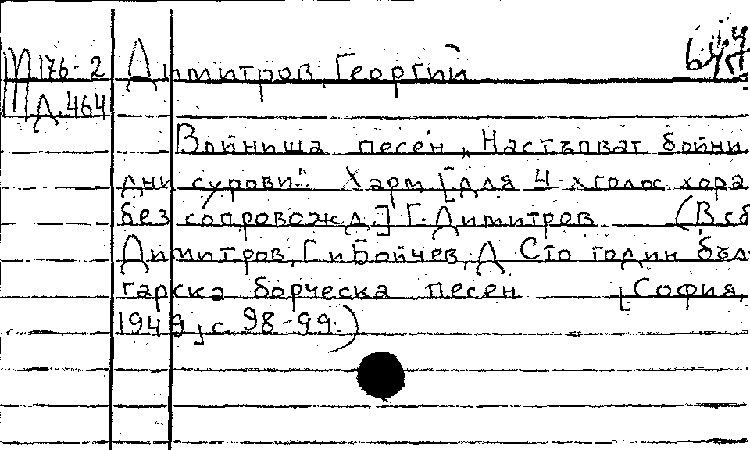 М 176-2 Димитров, Георгий
Д.464
Войнишa песен „Настъпват бойни
дни сурови". Харм. [для 4-хголос. хора
без сопровожд.] Г. Димитров (В сб
Димитров, Г. и Бойчев, А Сто годин бъл-
гарска борческа песен [София,
1949], с. 98-99.)